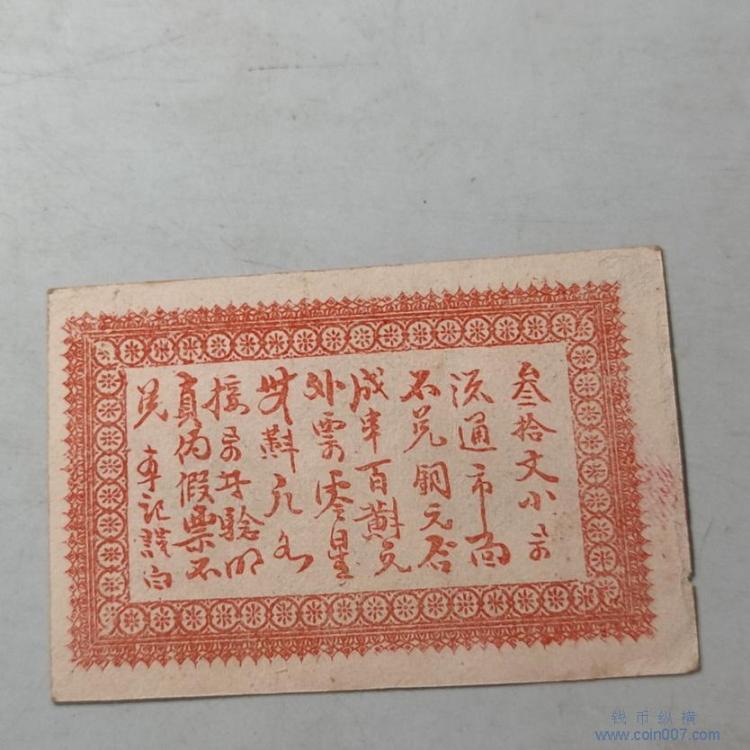 叁拾文小票
流通市面
不兑铜元
成串百
外票零星
接票年验明
真伪假票不
兑 本记谨白
钱币纵横
www.coin007.com